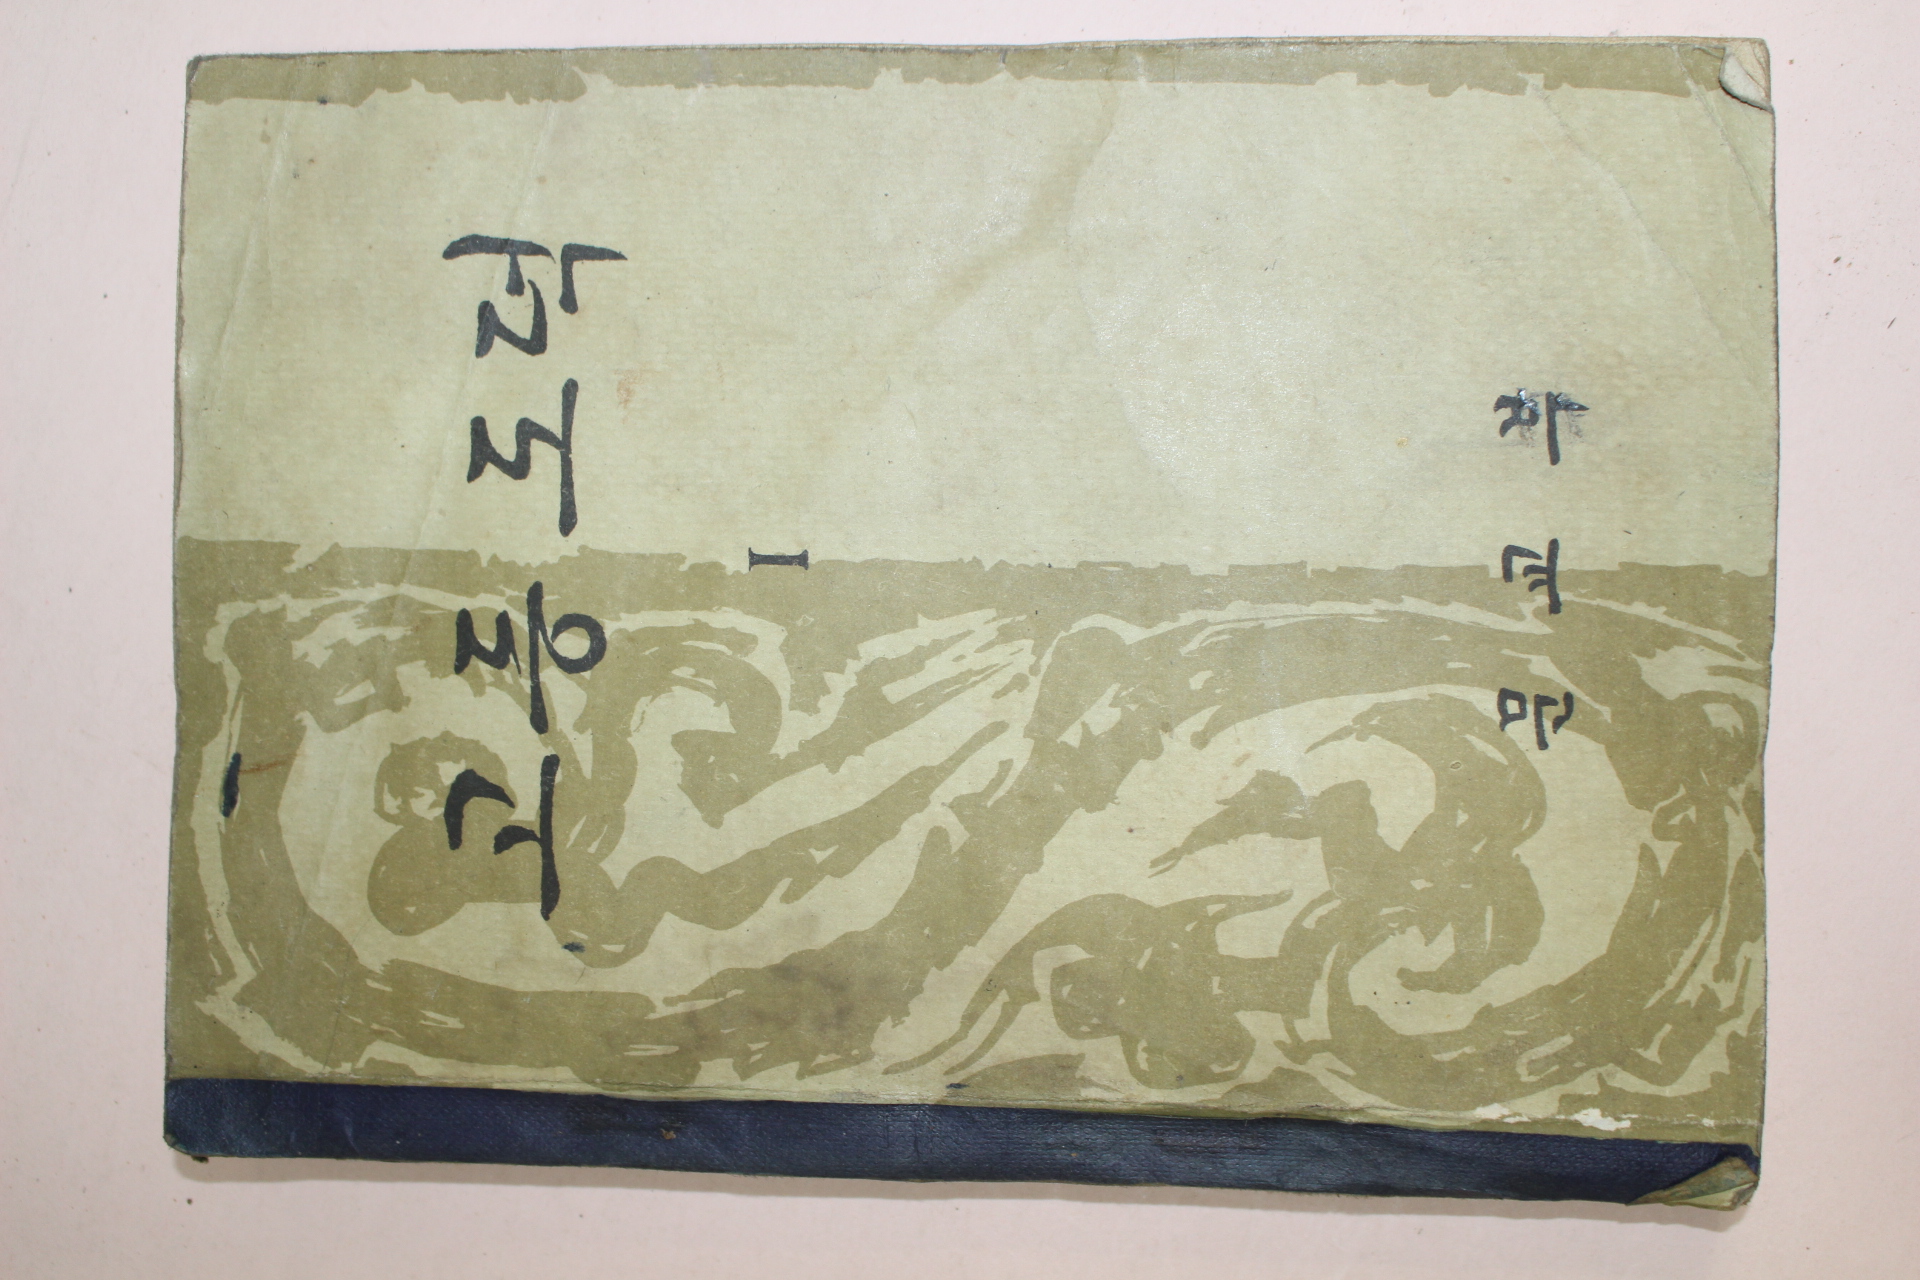 고등 도덕
I
문교부